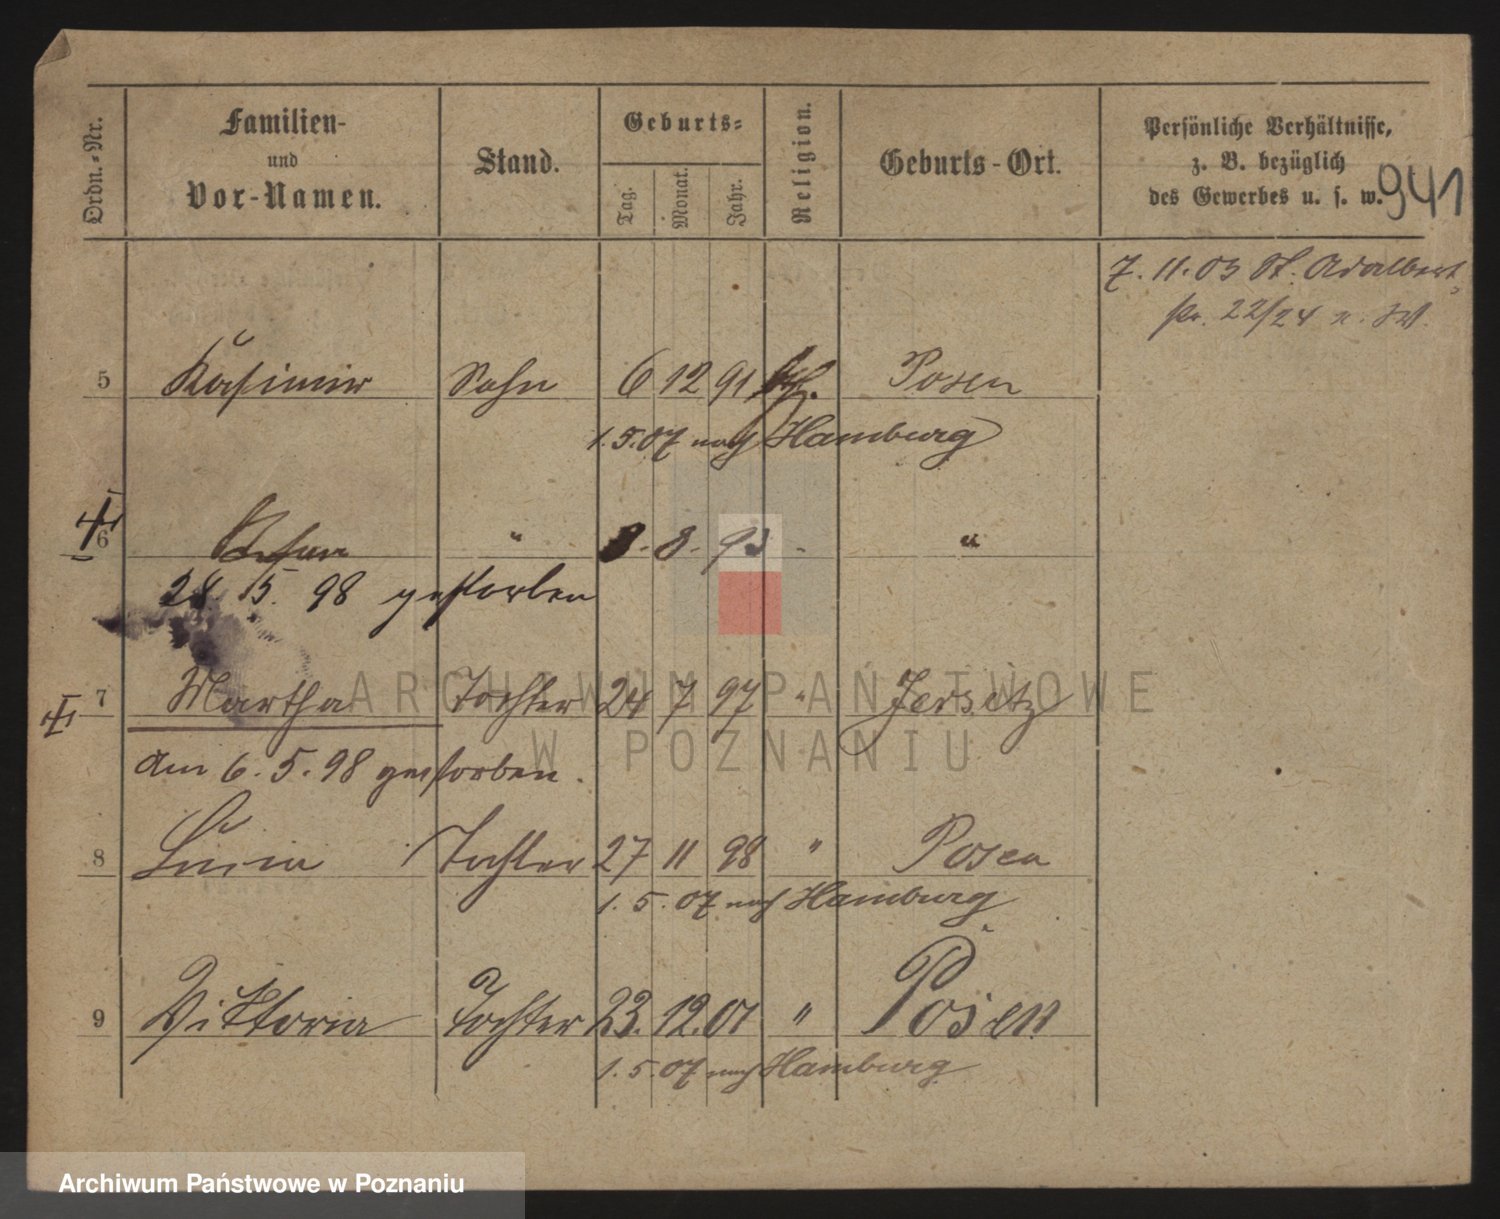 Ordn.-Nr. Familien- und Vor-Namen. Stand. Geburts- Tag. Monat. Jahr. Religion. Geburts-Ort. Persönliche Verhältnisse, z. B. bezüglich des Gewerbes u. s. w.
941
7. 11. 03 St. Adalbert
22/24 n. W.
5 Kasimir Sohn 6 12 91 kth. Posen
1. 5. 07 nach Hamburg
6 Stefan " 8. 8. 93 - "
28. 5. 98 gestorben
7 Martha Tochter 24 7 97 " Jersitz
am 6. 5. 98 gestorben.
8 Lucia Tochter 27 11 98 " Posen
1. 5. 07 nach Hamburg
9 Viktoria Tochter 23. 12. 01 " Posen
1. 5. 07 nach Hamburg
ARCHIWUM PAŃSTWOWE
W POZNANIU
Archiwum Państwowe w Poznaniu